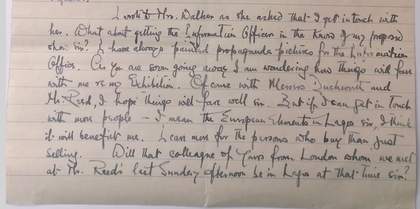 I wrote to Mrs. Walker as she asked that I get in touch with
her. What about getting the Information Officer in the know of my proposed
show sir? I have always painted propaganda pictures for the Information
Office. As you are soon going away I am wondering how things will fare
with me re my Exhibition. Of course with Messrs Duckworth and
Mr. Reed, I hope things will fare well sir. But if I can get in touch
with more people – I mean the European Elements in Lagos sir, I think
it will benefit me. I care more for the persons who buy than just
selling. Will that colleague of yours from London whom we met
at Mr. Reed's last Sunday afternoon be in Lagos at that time sir?